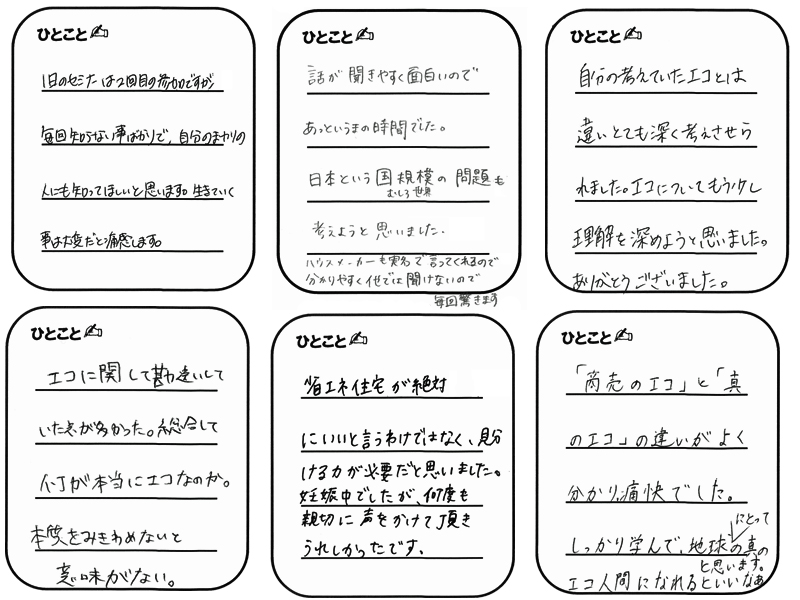 ひとこと
1日のセミナーは2回目の参加ですが
毎回知らない事ばかりで、自分のまわりの
人にも知ってほしいと思います。生きていく
事は大変だと痛感します。
ひとこと
話が聞きやすく面白いので
あっというまの時間でした。
日本という国規模の問題も
むしろ世界
考えようと思いました。
ハウスメーカーも実名で言ってくれるので
分かりやすく他では聞けないので
毎回驚きます
ひとこと
自分の考えていたエコとは
違いとても深く考えさせら
れました。エコについてもう少し
理解を深めようと思いました。
ありがとうございました。
ひとこと
エコに関して勘違いして
いた点が多かった。総合して
何が本当にエコなのか。
本質をみきわめないと
意味がない。
ひとこと
省エネ住宅が絶対
にいいと言うわけではなく、見分
ける力が必要だと思いました。
妊娠中でしたが、何度も
親切に声をかけて頂き
うれしかったです。
ひとこと
「商売のエコ」と「真
のエコ」の違いがよく
分かり、痛快でした。
にとって
しっかり学んで、地球の真の
と思います。
エコ人間になれるといいなぁ